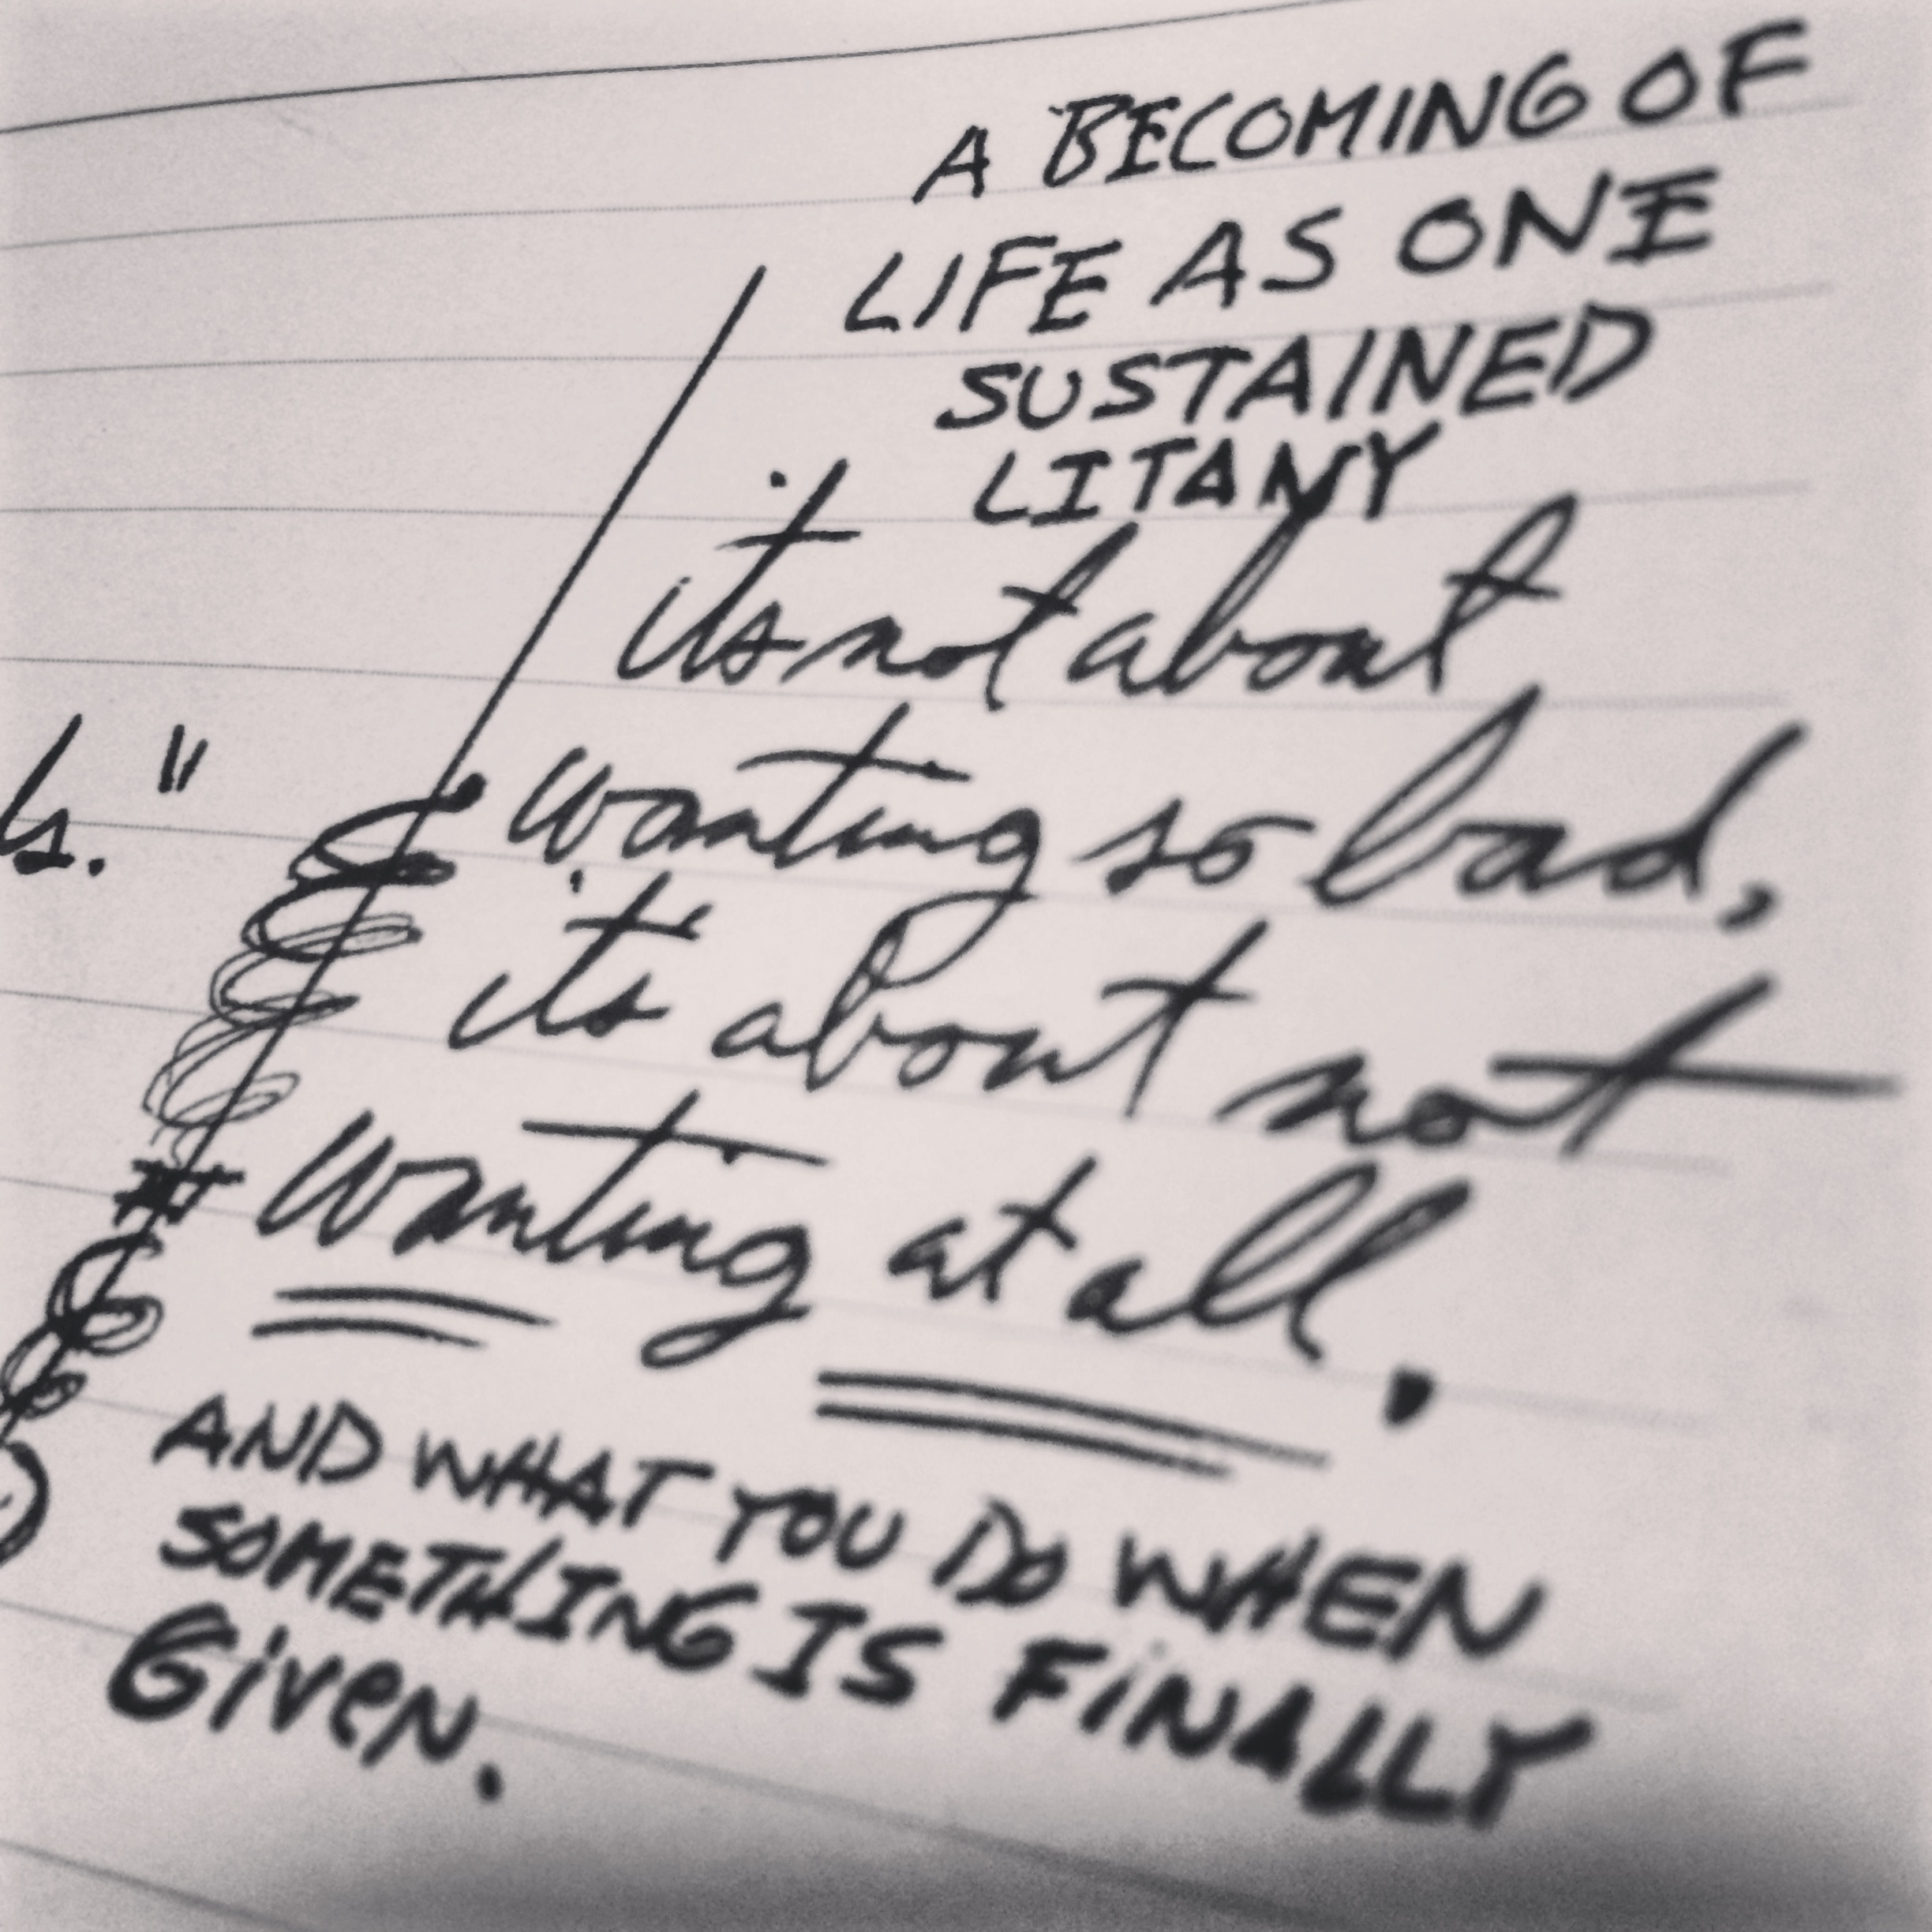 A BECOMING OF
LIFE AS ONE
SUSTAINED
LITANY
it's not about
wanting so bad,
it's about not
wanting at all.
AND WHAT YOU DO WHEN
SOMETHING IS FINALLY
GIVEN.